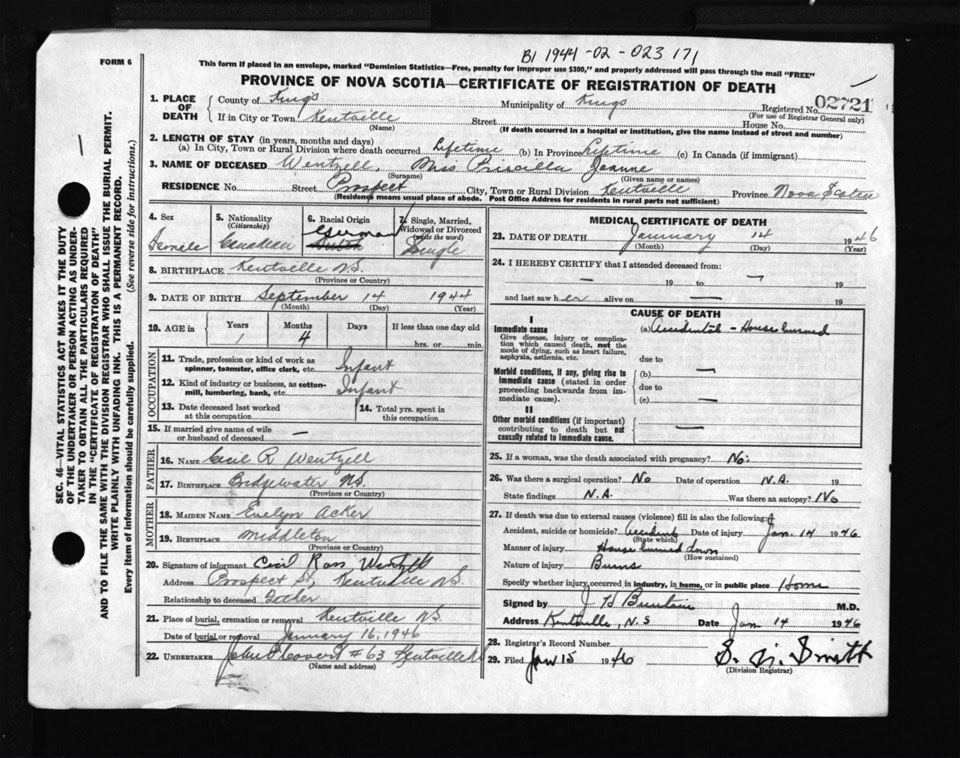 B1 1944-02-023171
FORM 6
This form if placed in an envelope, marked "Dominion Statistics—Free, penalty for improper use $300," and properly addressed will pass through the mail "FREE"
PROVINCE OF NOVA SCOTIA—CERTIFICATE OF REGISTRATION OF DEATH
1. PLACE OF DEATH County of Kings Municipality of Kings Registered No. 02721
(For use of Registrar General only)
If in City or Town Kentville Street House No.
(Name) (If death occurred in a hospital or institution, give the name instead of street and number)
2. LENGTH OF STAY (in years, months and days)
(a) In City, Town or Rural Division where death occurred Lifetime (b) In Province Lifetime (c) In Canada (if immigrant)
3. NAME OF DECEASED Wentzell, Miss Priscilla Joanne
(Surname) (Given name or names)
RESIDENCE No. Street Prospect City, Town or Rural Division Kentville Province Nova Scotia
(Residence means usual place of abode. Post Office Address for residents in rural parts not sufficient)
4. Sex Female
5. Nationality (Citizenship) Canadian
6. Racial Origin German Dutch
7. Single, Married, Widowed or Divorced (write the word) Single
8. BIRTHPLACE Kentville N.S.
(Province or Country)
9. DATE OF BIRTH September 14 1944
(Month) (Day) (Year)
10. AGE in Years 1 Months 4 Days If less than one day old hrs. or min.
OCCUPATION
11. Trade, profession or kind of work as spinner, teamster, office clerk, etc. Infant
12. Kind of industry or business, as cotton-mill, lumbering, bank, etc. Infant
13. Date deceased last worked at this occupation
14. Total yrs. spent in this occupation
15. If married give name of wife or husband of deceased —
FATHER
16. NAME Cecil R Wentzell
17. BIRTHPLACE Bridgewater N.S.
(Province or Country)
MOTHER
18. MAIDEN NAME Evelyn Acker
19. BIRTHPLACE Middleton
(Province or Country)
20. Signature of informant Cecil Ross Wentzell
Address Prospect St, Kentville N.S.
Relationship to deceased Father
21. Place of burial, cremation or removal Kentville N.S.
Date of burial or removal January 16, 1946
22. UNDERTAKER #63 Kentville
(Name and address)
MEDICAL CERTIFICATE OF DEATH
23. DATE OF DEATH January 14 1946
(Month) (Day) (Year)
24. I HEREBY CERTIFY that I attended deceased from:
— 19 to — 19
and last saw her alive on — 19
CAUSE OF DEATH
I
Immediate cause (a) Accidental - House burned
Give disease, injury or complication which caused death, not the mode of dying, such as heart failure, asphyxia, asthenia, etc.
due to
Morbid conditions, if any, giving rise to immediate cause (stated in order proceeding backwards from immediate cause). (b) —
due to
(c) —
II
Other morbid conditions (if important) contributing to death but not causally related to immediate cause. —
25. If a woman, was the death associated with pregnancy? No:
26. Was there a surgical operation? No Date of operation N.A. 19
State findings N.A. Was there an autopsy? No
27. If death was due to external causes (violence) fill in also the following:
Accident, suicide or homicide? Accident Date of injury Jan. 14 1946
(State which)
Manner of injury House burned down
(How sustained)
Nature of injury Burns
Specify whether injury occurred in industry, in home, or in public place Home
Signed by M.D.
Address Kentville, N.S Date Jan 14 1946
28. Registrar's Record Number
29. Filed Jan 15 1946 Smith
(Division Registrar)
SEC. 46—VITAL STATISTICS ACT MAKES IT THE DUTY
OF THE UNDERTAKER OR PERSON ACTING AS UNDER-
TAKER TO OBTAIN ALL THE PARTICULARS REQUIRED
IN THE "CERTIFICATE OF REGISTRATION OF DEATH"
AND TO FILE THE SAME WITH THE DIVISION REGISTRAR WHO SHALL ISSUE THE BURIAL PERMIT.
WRITE PLAINLY WITH UNFADING INK. THIS IS A PERMANENT RECORD.
Every item of information should be carefully supplied. (See reverse side for instructions.)